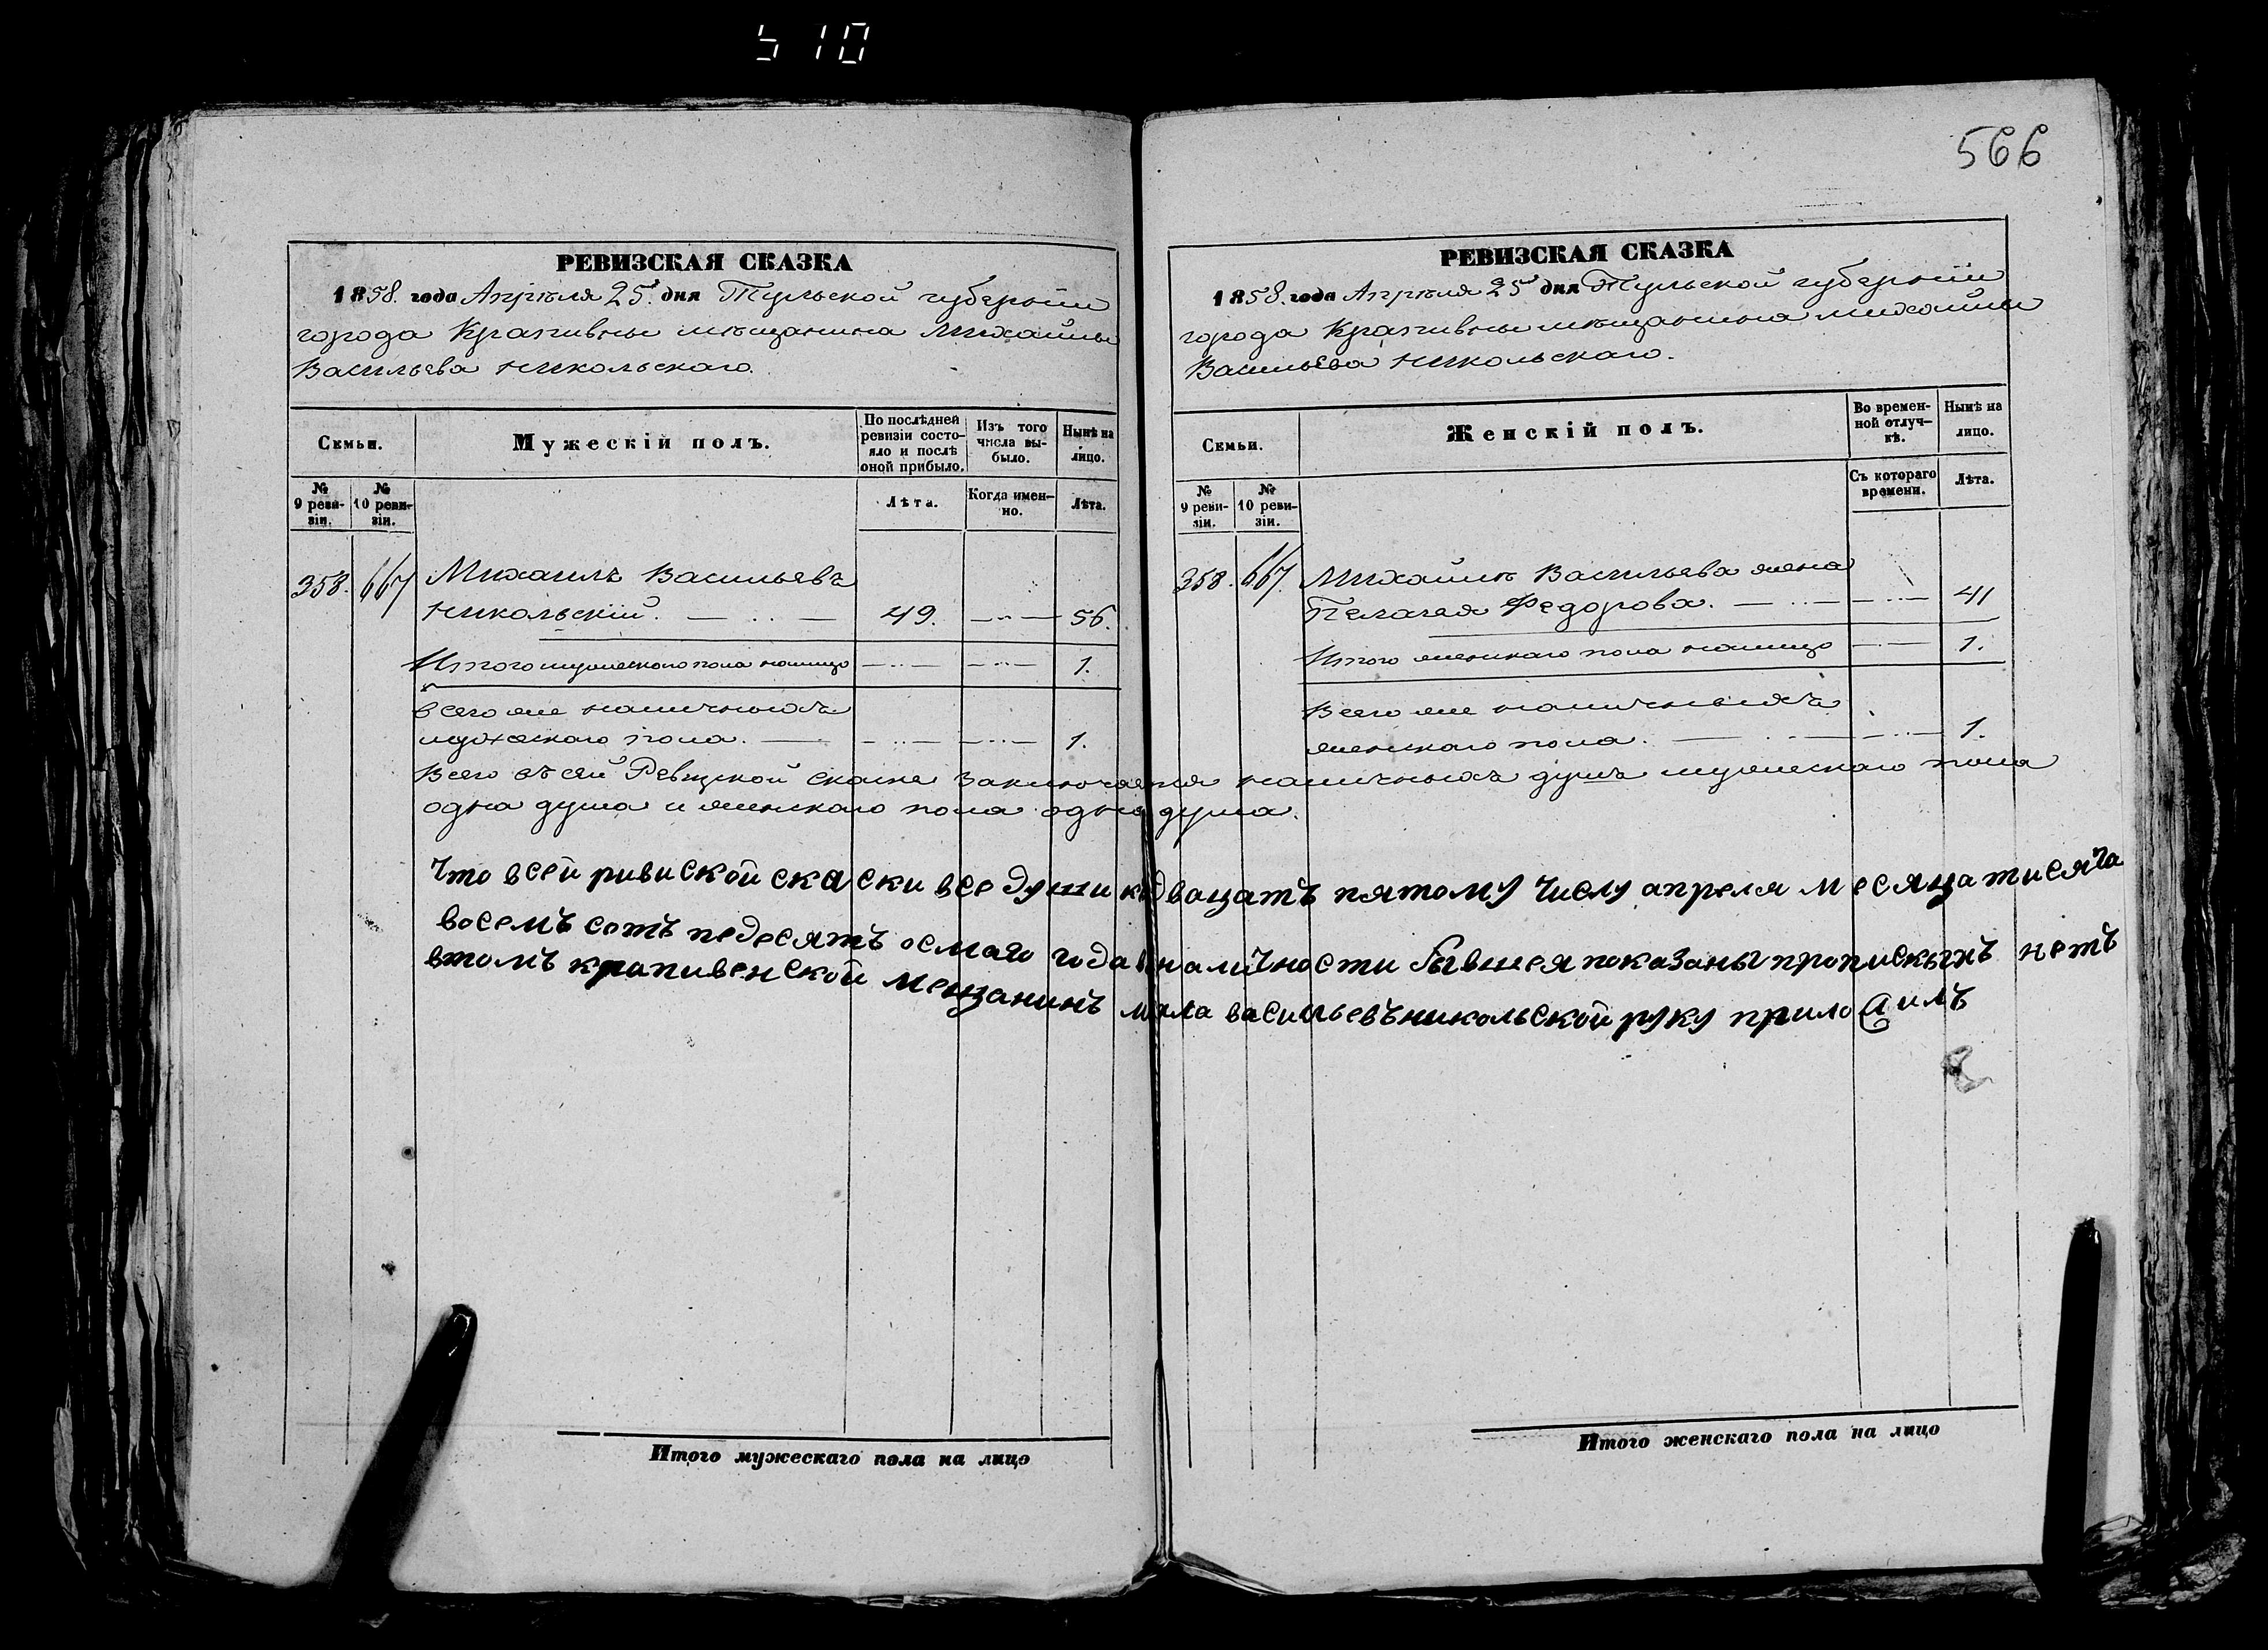 510
566
РЕВИЗСКАЯ СКАЗКА
1858. года Апрѣля 25. дня Тульской губерніи
города Крапивны мѣщанина Михайлы
Васильева Никольскаго.
Семьи.
Мужескій полъ.
По послѣдней ревизіи состо-
яло и послѣ
оной прибыло.
Изъ того
числа вы-
было.
Нынѣ на
лицо.
№
9 реви-
зіи.
№
10 реви-
зіи.
Лѣта.
Когда имен-
но.
Лѣта.
358. 667 Михаилъ Васильевъ
Никольскій. 49. 56.
Итого мужескаго пола налицо 1.
Всего же наличныхъ
мужескаго пола. 1.
РЕВИЗСКАЯ СКАЗКА
1858. года Апрѣля 25 дня Тульской губерніи
города Крапивны мѣщанина Михайлы
Васильева Никольскаго.
Семьи.
Женскій полъ.
Во времен-
ной отлуч-
кѣ.
Нынѣ на
лицо.
№
9 реви-
зіи.
№
10 реви-
зіи.
Съ котораго
времени.
Лѣта.
358. 667. Михайлы Васильева жена
Пелагея Федорова. 41
Итого женскаго пола налицо 1.
Всего же наличныхъ
женскаго пола. 1.
Всего въ сей Ревизской сказке заключается наличныхъ душъ мужескаго пола
одна душа и женскаго пола одна душа.
Что всей ривиской скаски все души кдвацать пятому числу апреля месяца тисяча
восемъ сотъ педесятъ осмаго года вналичности бывшея показаны прописныхъ нетъ
втомъ крапивенской мещанинъ васильевъ никольской руку приложилъ
Итого мужескаго пола на лицо
Итого женскаго пола на лицо